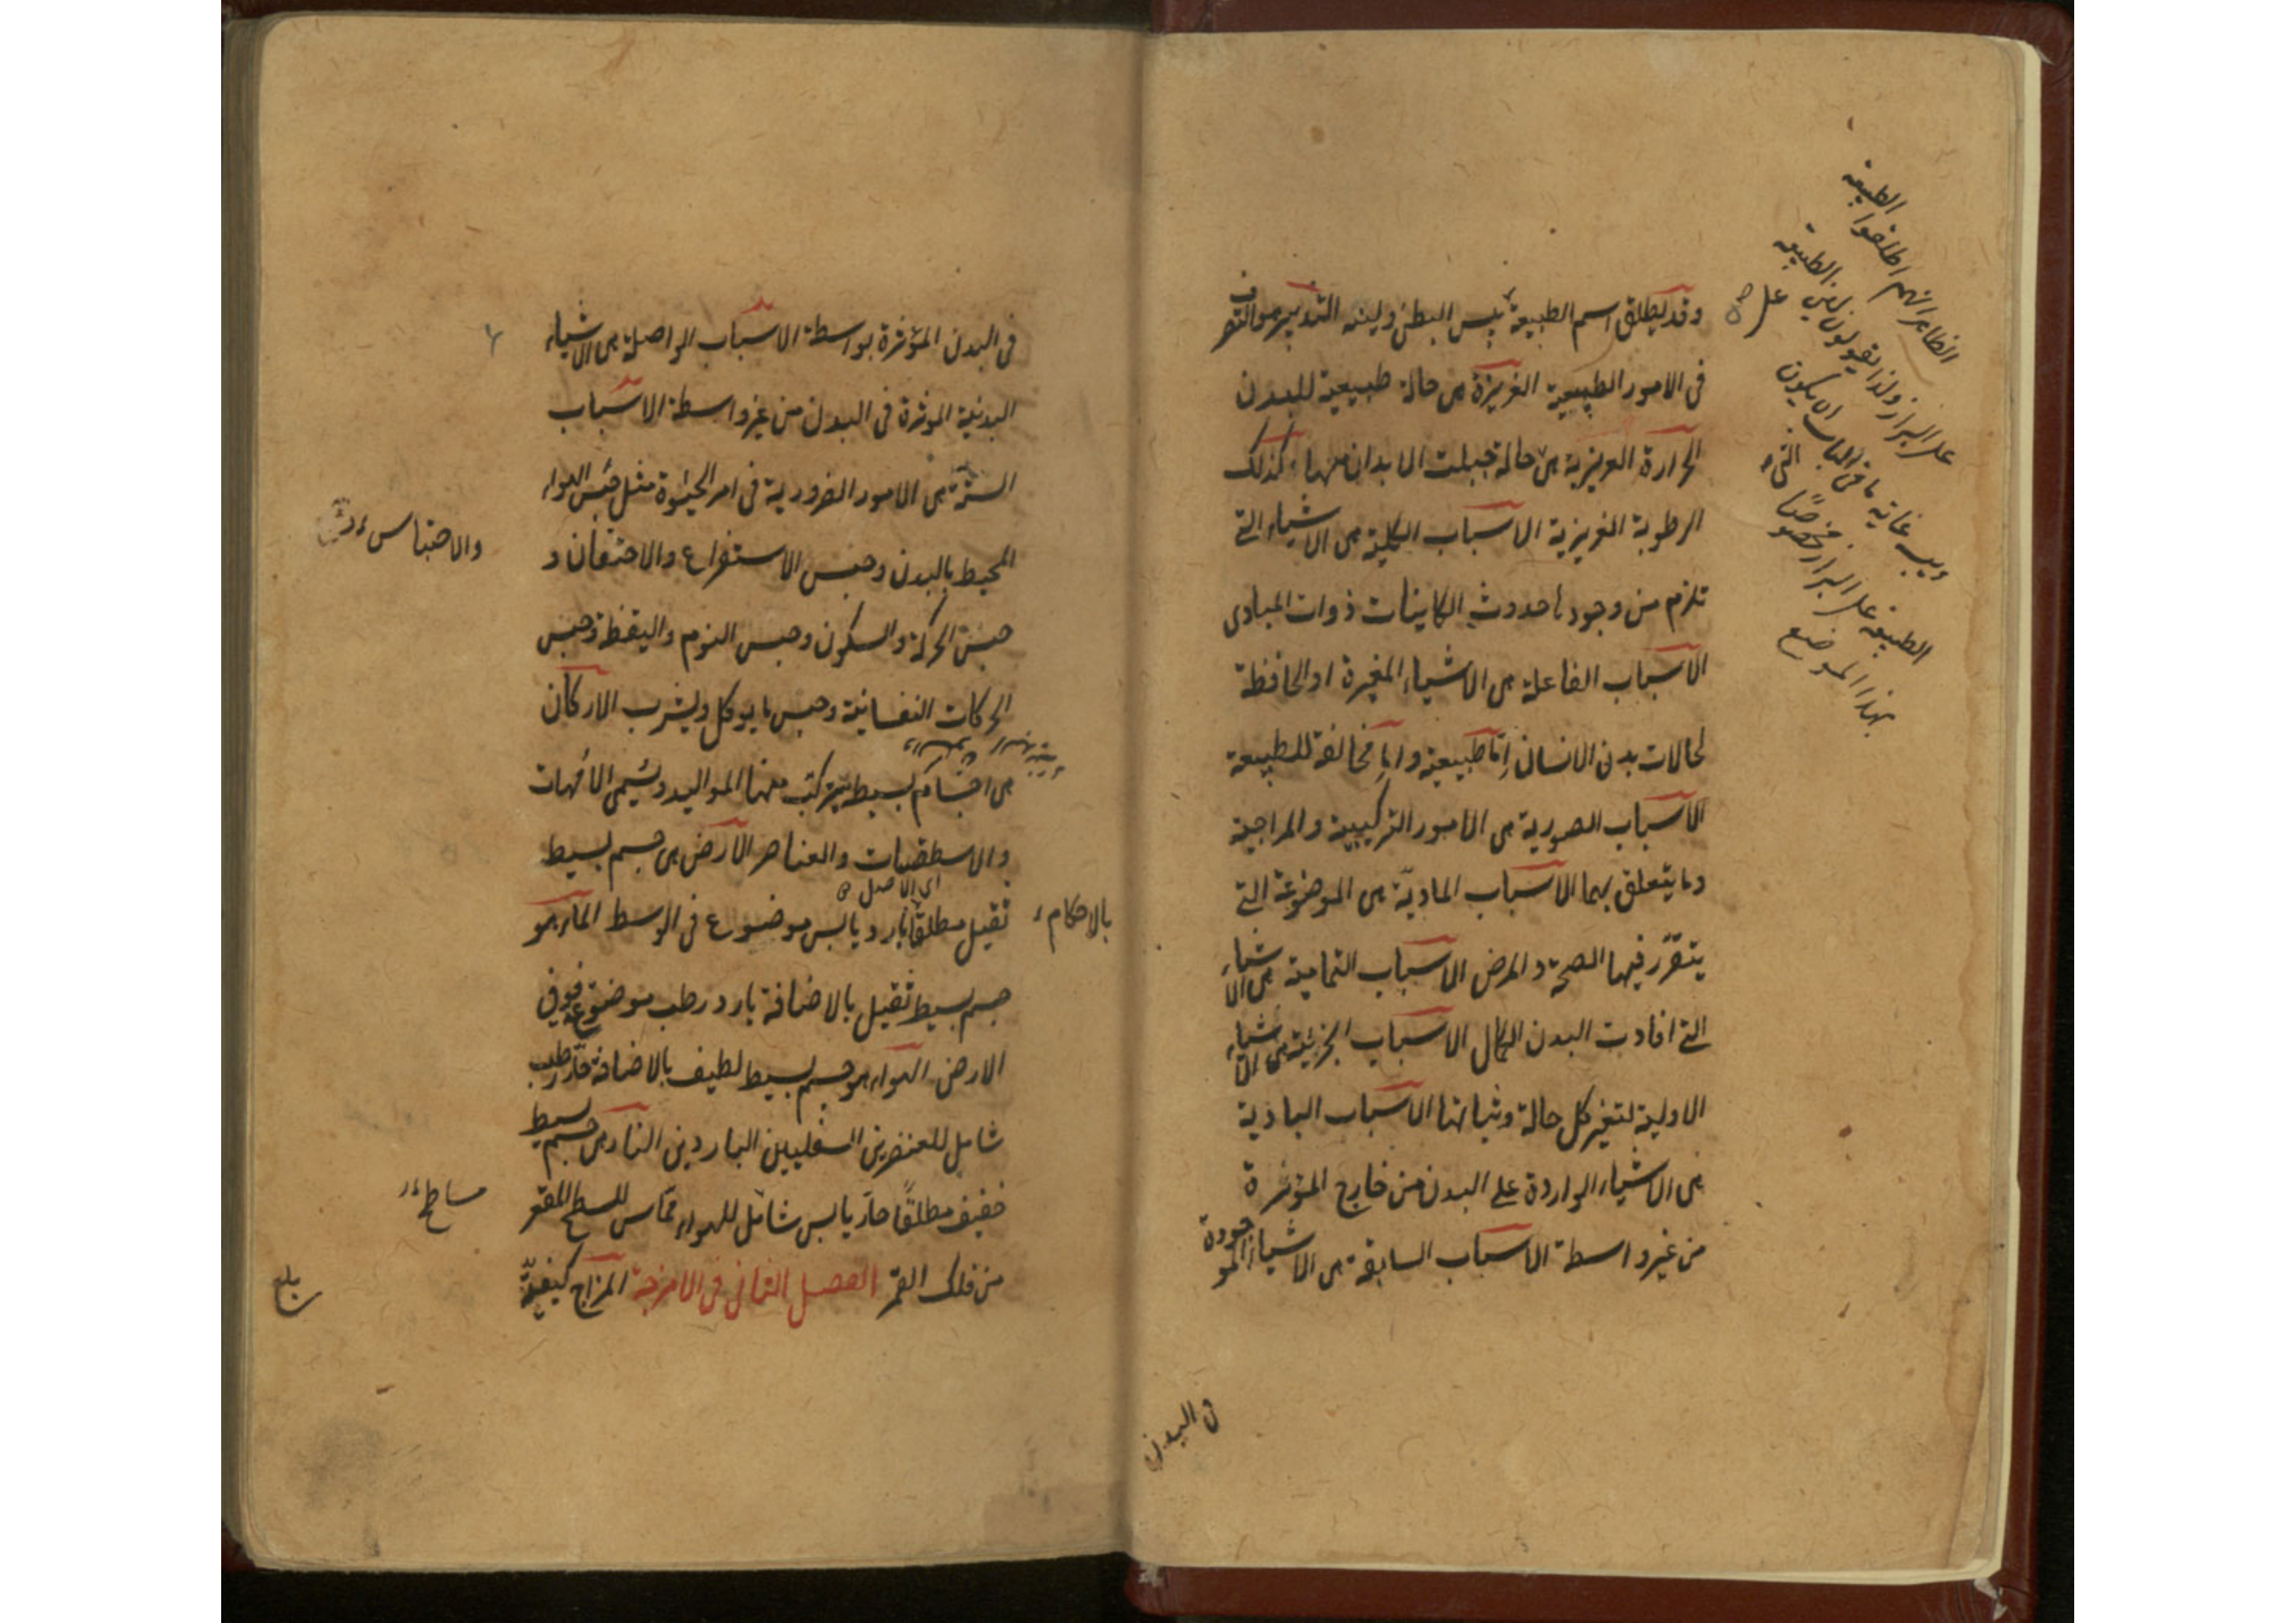 وقد يطلق اسم الطبيعة يبس البطن ولينه التدبير هو التصرف
فى الامور الطبيعية الغريزة هى حالة طبيعية للبدن
الحرارة الغريزية هى حالة جبلت الابدان معها وكذلك
الرطوبة الغريزية الاسباب الكلية هى الاشياء التى
تلزم من وجودها حدوث الكاينات ذوات المبادى
الاسباب الفاعلة هى الاشياء المغيرة او الحافظة
لحالات بدن الانسان اما طبيعية واما مخالفة للطبيعة
الاسباب الصورية هى الامور التركيبية والمزاجية
وما يتعلق بهما الاسباب المادية هى الموضوعة التى
يتقرر فيها الصحة والمرض الاسباب التمامية هى الاشياء
التى افادت البدن الكمال الاسباب الجزئية هى الاشياء
الاولية لتغير كل حالة وثباتها الاسباب البادية
هى الاشياء الواردة على البدن من خارج المؤثرة
من غير واسطة الاسباب السابقة هى الاشياء الموجودة
فى البدن
الظاهر انهم اطلقوا الطبيعة
على البراز ولذا يقولون لين الطبيعة
ويبسه غاية ما فى الباب ان يكون
الطبيعة على البراز مخصوصًا
بهذا الموضع
فى البدن المؤثرة بواسطة الاسباب الواصلة هى الاشياء
البدنية الموثرة فى البدن من غير واسطة الاسباب
الستة هى الامور الضرورية فى امر الحيوة مثل جنس الهواء
المحيط بالبدن وجنس الاستفراغ والاحتقان و
جنس الحركة والسكون وجنس النوم واليقظة وجنس
الحركات النفسانية وجنس ما يوكل ويشرب الاركان
هى اجسام بسيطة يتركب منها المواليد ويسمى الامهات
والاسطقسات والعناصر الارض هى جسم بسيط
ثقيل مطلقا بارد يابس موضوع فى الوسط الماء هو
جسم بسيط ثقيل بالاضافة بارد رطب موضوعه فوق
الارض الهواء هو جسم بسيط لطيف بالاضافة حار رطب
شامل للعنصرين السفليين الباردين النار هى جسم بسيط
خفيف مطلقًا حار يابس شامل للهواء مماس للسطح المقعر
من فلك القمر الفصل الثانى فى الامزجة المزاج كيفية
والاحتباس
اى الاصل
بالاحكام
بلغ